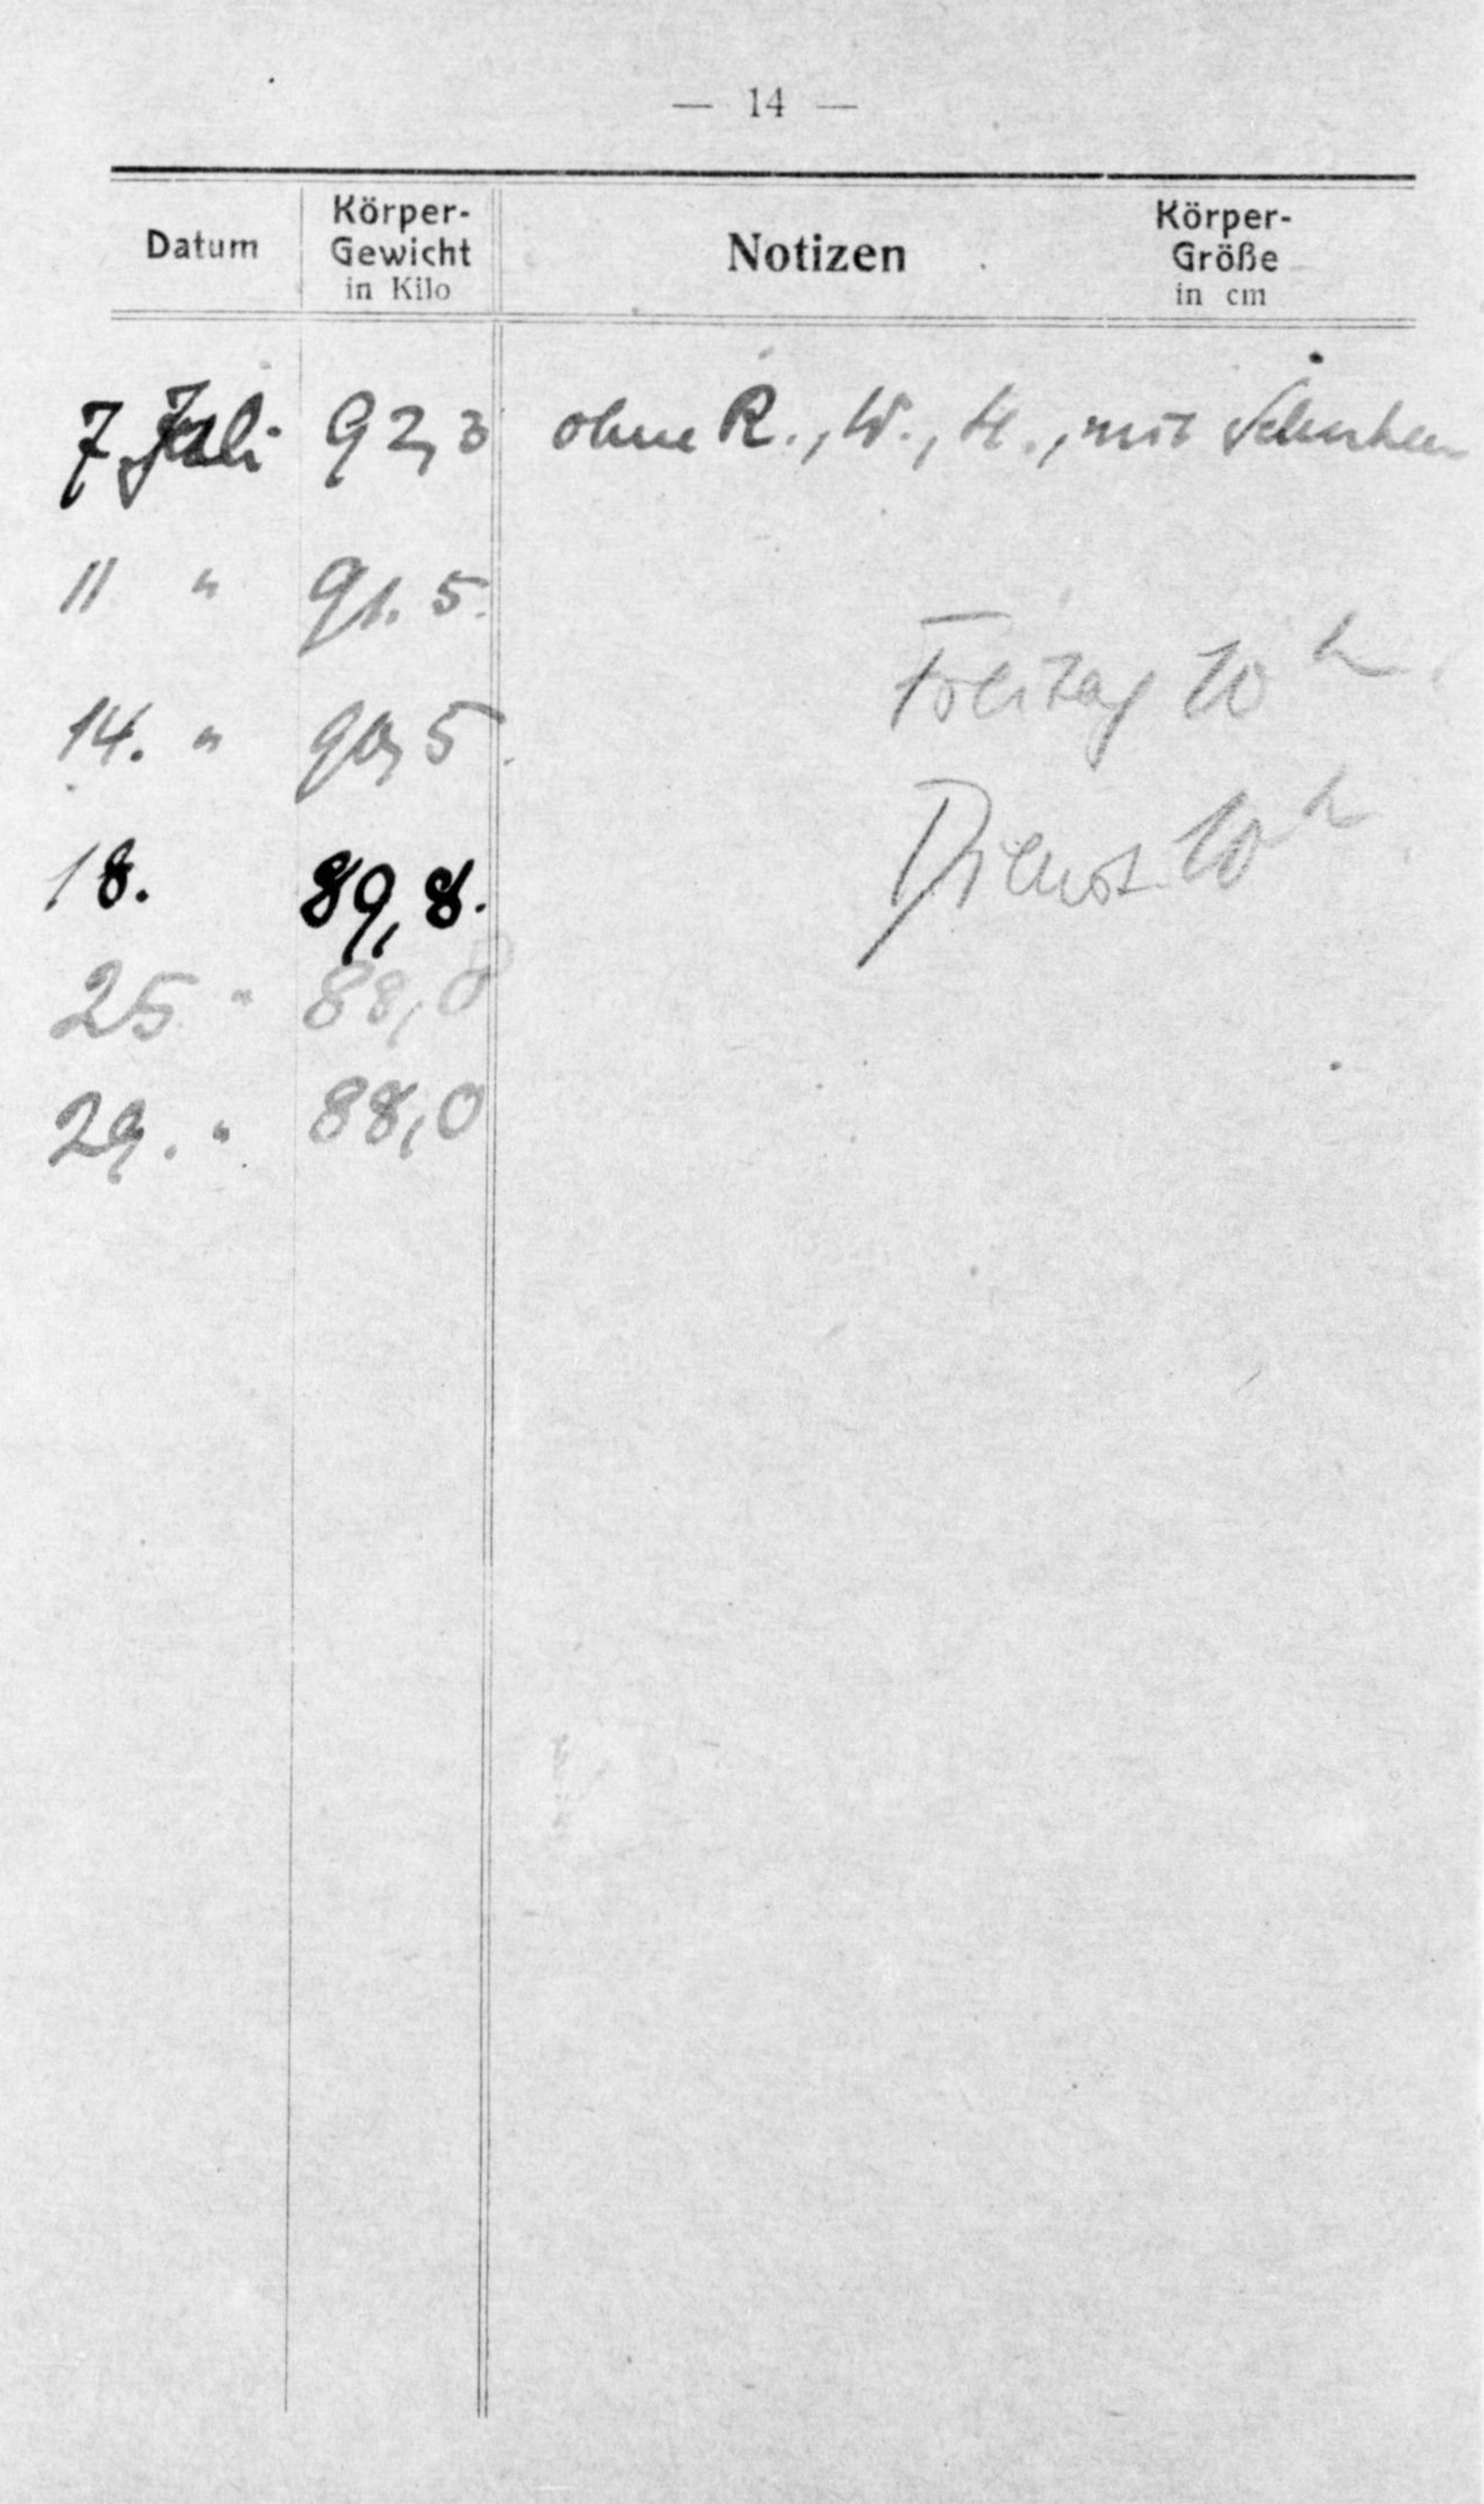 — 14 —
Datum Körper-Gewicht in Kilo Notizen Körper-Größe in cm
7 Juli 92,3 ohne R., W., H., mit Schuhen
11 " 91.5.
Freitag 10 h
14. " 90,5.
Dienst. 10 h
18. 89,8.
25 " 88,8
29. " 88,0